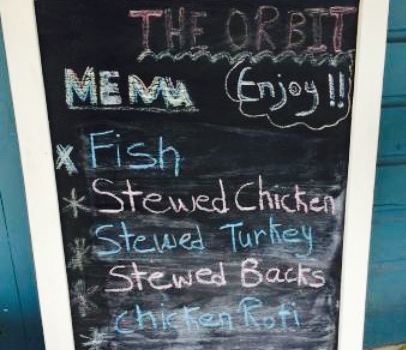 THE ORBIT
MENU
Enjoy!!
x Fish
* Stewed Chicken
* Stewed Turkey
* Stewed Backs
* Chicken Roti